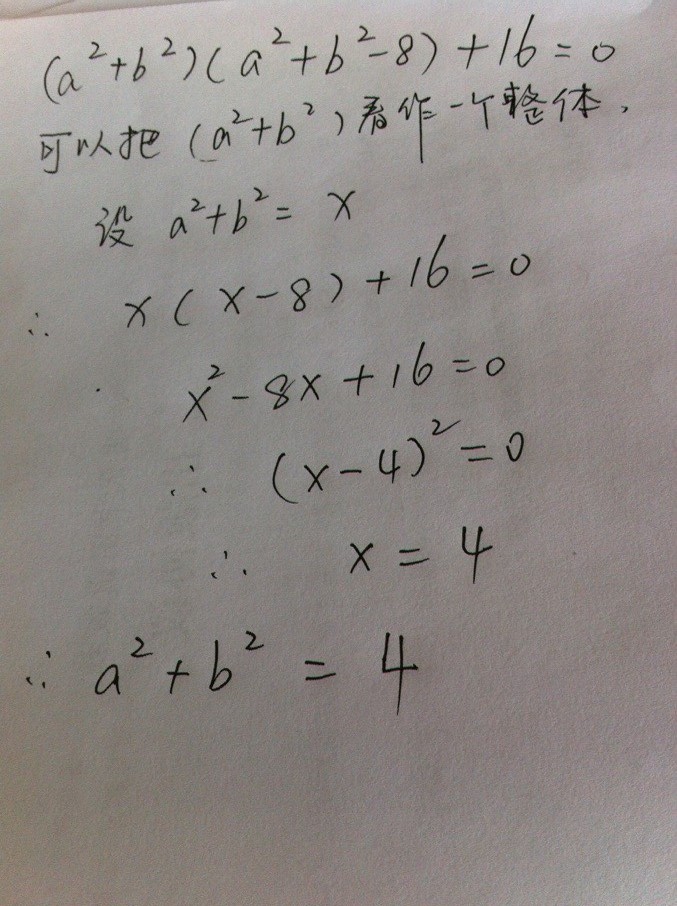 (a²+b²)(a²+b²-8)+16=0
可以把(a²+b²)看作一个整体.
设 a²+b²= x
∴ x(x-8)+16=0
x²-8x+16=0
∴ (x-4)²=0
∴ x=4
∴ a²+b² = 4